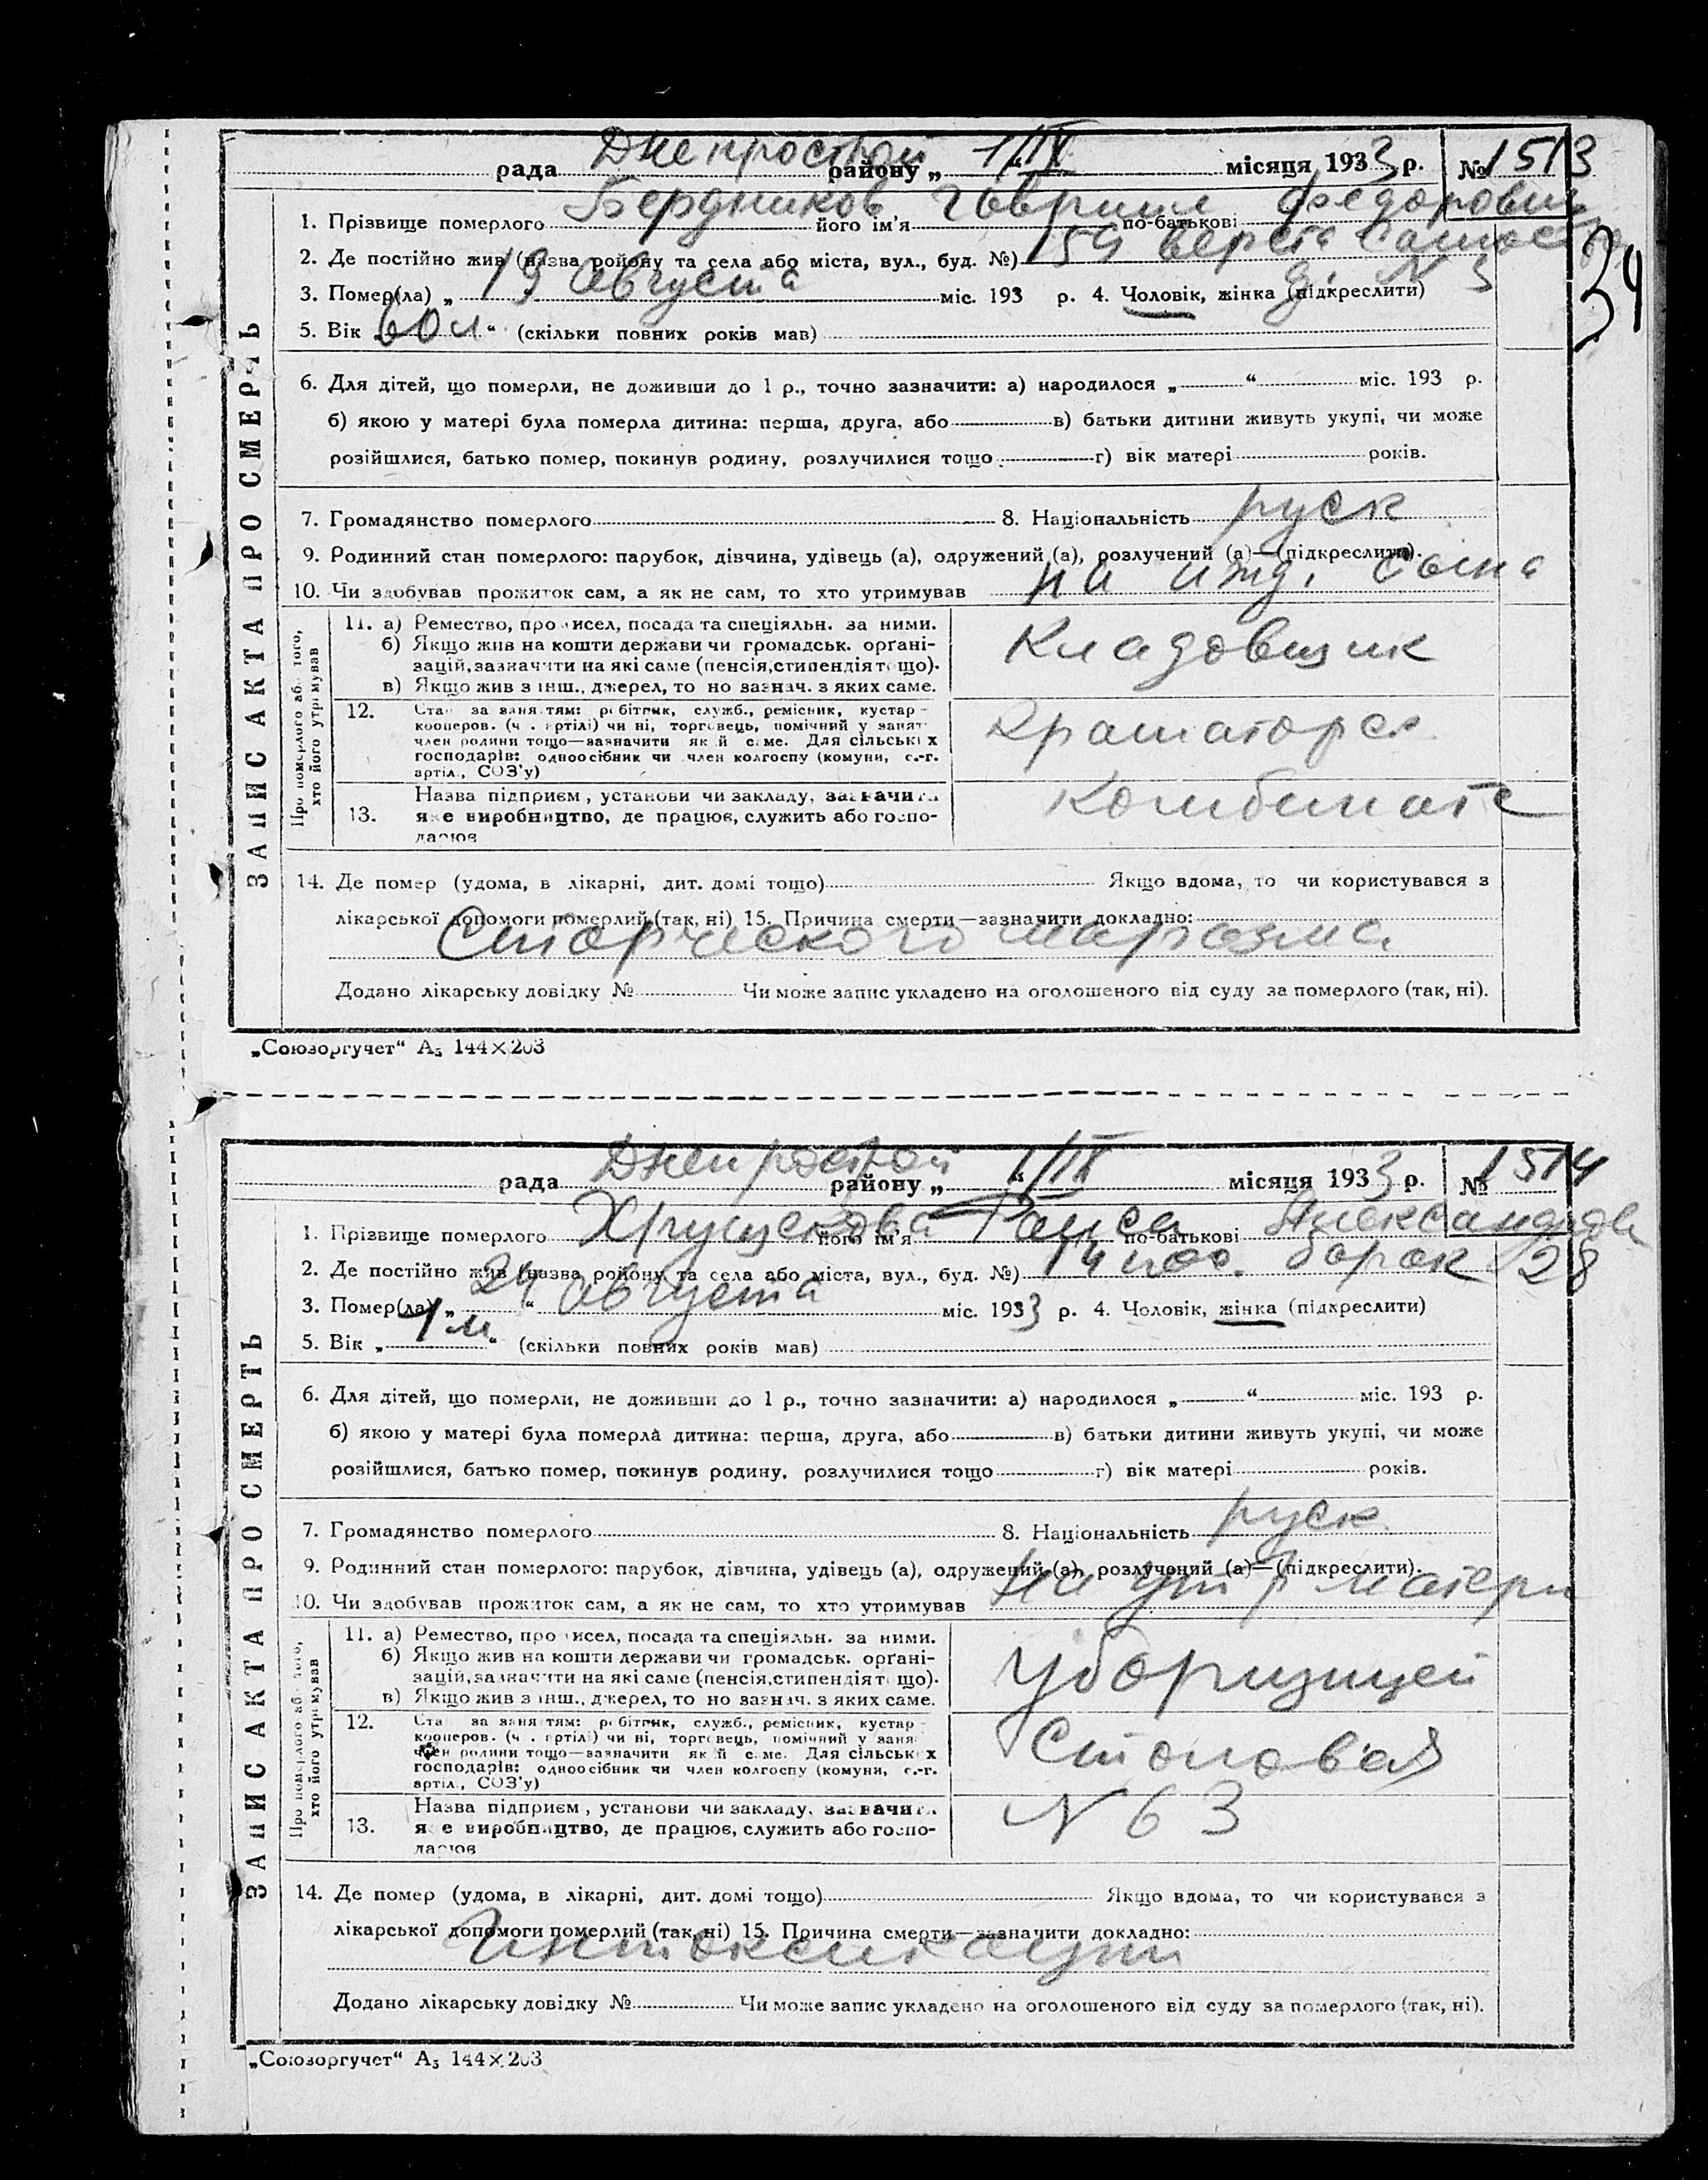 Днепрострой 1/IX
рада району „ “ місяця 1933 р. № 1513
1. Прізвище померлого Бердников його ім’я Гавриил по-батькові Федорович
2. Де постійно жив (назва району та села або міста, вул., буд. №) 154 верста
3. Помер(ла) „ 19 Августа міс. 193 р. 4. Чоловік, жінка (підкреслити) д. N 5
34
5. Вік „60 л“ (скільки повних років мав)
6. Для дітей, що померли, не доживши до 1 р., точно зазначити: а) народилося „ “ міс. 193 р.
б) якою у матері була померла дитина: перша, друга, або в) батьки дитини живуть укупі, чи може
розійшлися, батько помер, покинув родину, розлучилися тощо г) вік матері років.
7. Громадянство померлого 8. Національність руск
9. Родинний стан померлого: парубок, дівчина, удівець (а), одружений (а), розлучений (а)—(підкреслити).
10. Чи здобував прожиток сам, а як не сам, то хто утримував на ижд. сына
ЗАПИС АКТА ПРО СМЕРТЬ
Про померлого або того,
хто його утримував
11. а) Ремество, промисел, посада та спеціяльн. за ними.
б) Якщо жив на кошти держави чи громадськ. орґані-
зацій, зазначити на які саме (пенсія, стипендія тощо).
в) Якщо жив з інш., джерел, то но зазнач. з яких саме.
Кладовщик
12. Стан за заняттям: робітник, служб., ремісник, кустар
кооперов. (ч . артілі) чи ні, торговець, помічний у занят
член родини тощо—зазначити як й саме. Для сільськ х
господарів: одноосібник чи член колгоспу (комуни, с.-г.
артіл., СОЗ’у)
Краматорск
13. Назва підприєм, установи чи закладу, зазначити
яке виробництво, де працює, служить або госпо-
дарює
Комбинате
14. Де помер (удома, в лікарні, дит. домі тощо) Якщо вдома, то чи користувався з
лікарської допомоги померлий (так, ні) 15. Причина смерти—зазначити докладно:
Старческого маразма
Додано лікарську довідку № Чи може запис укладено на оголошеного від суду за померлого (так, ні).
„Союзоргучет“ А5 144×203
Днепрострой 1/IX
рада району „ “ місяця 1933 р. № 1514
1. Прізвище померлого Хрущекова його ім’я Раиса по-батькові Александров
2. Де постійно жив (назва району та села або міста, вул., буд. №) 14 пос. барак 28
3. Помер(ла) „24“ августа міс. 1933 р. 4. Чоловік, жінка (підкреслити)
5. Вік „1 м“ (скільки повних років мав)
6. Для дітей, що померли, не доживши до 1 р., точно зазначити: а) народилося „ “ міс. 193 р.
б) якою у матері була померла дитина: перша, друга, або в) батьки дитини живуть укупі, чи може
розійшлися, батько помер, покинув родину, розлучилися тощо г) вік матері років.
7. Громадянство померлого 8. Національність руск
9. Родинний стан померлого: парубок, дівчина, удівець (а), одружений (а), розлучений (а)—(підкреслити).
10. Чи здобував прожиток сам, а як не сам, то хто утримував на ижд матери
ЗАПИС АКТА ПРО СМЕРТЬ
Про померлого або того,
хто його утримував
11. а) Ремество, промисел, посада та спеціяльн. за ними.
б) Якщо жив на кошти держави чи громадськ. орґані-
зацій, зазначити на які саме (пенсія, стипендія тощо).
в) Якщо жив з інш., джерел, то но зазнач. з яких саме.
Уборщицей
12. Ста за заняттям: робітник, служб., ремісник, кустар
кооперов. (ч . артілі) чи ні, торговець, помічний у заня
член родини тощо—зазначити як й саме. Для сільськ х
господарів: одноосібник чи член колгоспу (комуни, с.-г.
артіл., СОЗ’у)
Столовая
13. Назва підприєм, установи чи закладу, зазначити
яке виробництво, де працює, служить або госпо-
дарює
N 63
14. Де помер (удома, в лікарні, дит. домі тощо) Якщо вдома, то чи користувався з
лікарської допомоги померлий (так, ні) 15. Причина смерти—зазначити докладно:
Интоксикации
Додано лікарську довідку № Чи може запис укладено на оголошеного від суду за померлого (так, ні).
„Союзоргучет“ А5 144×203